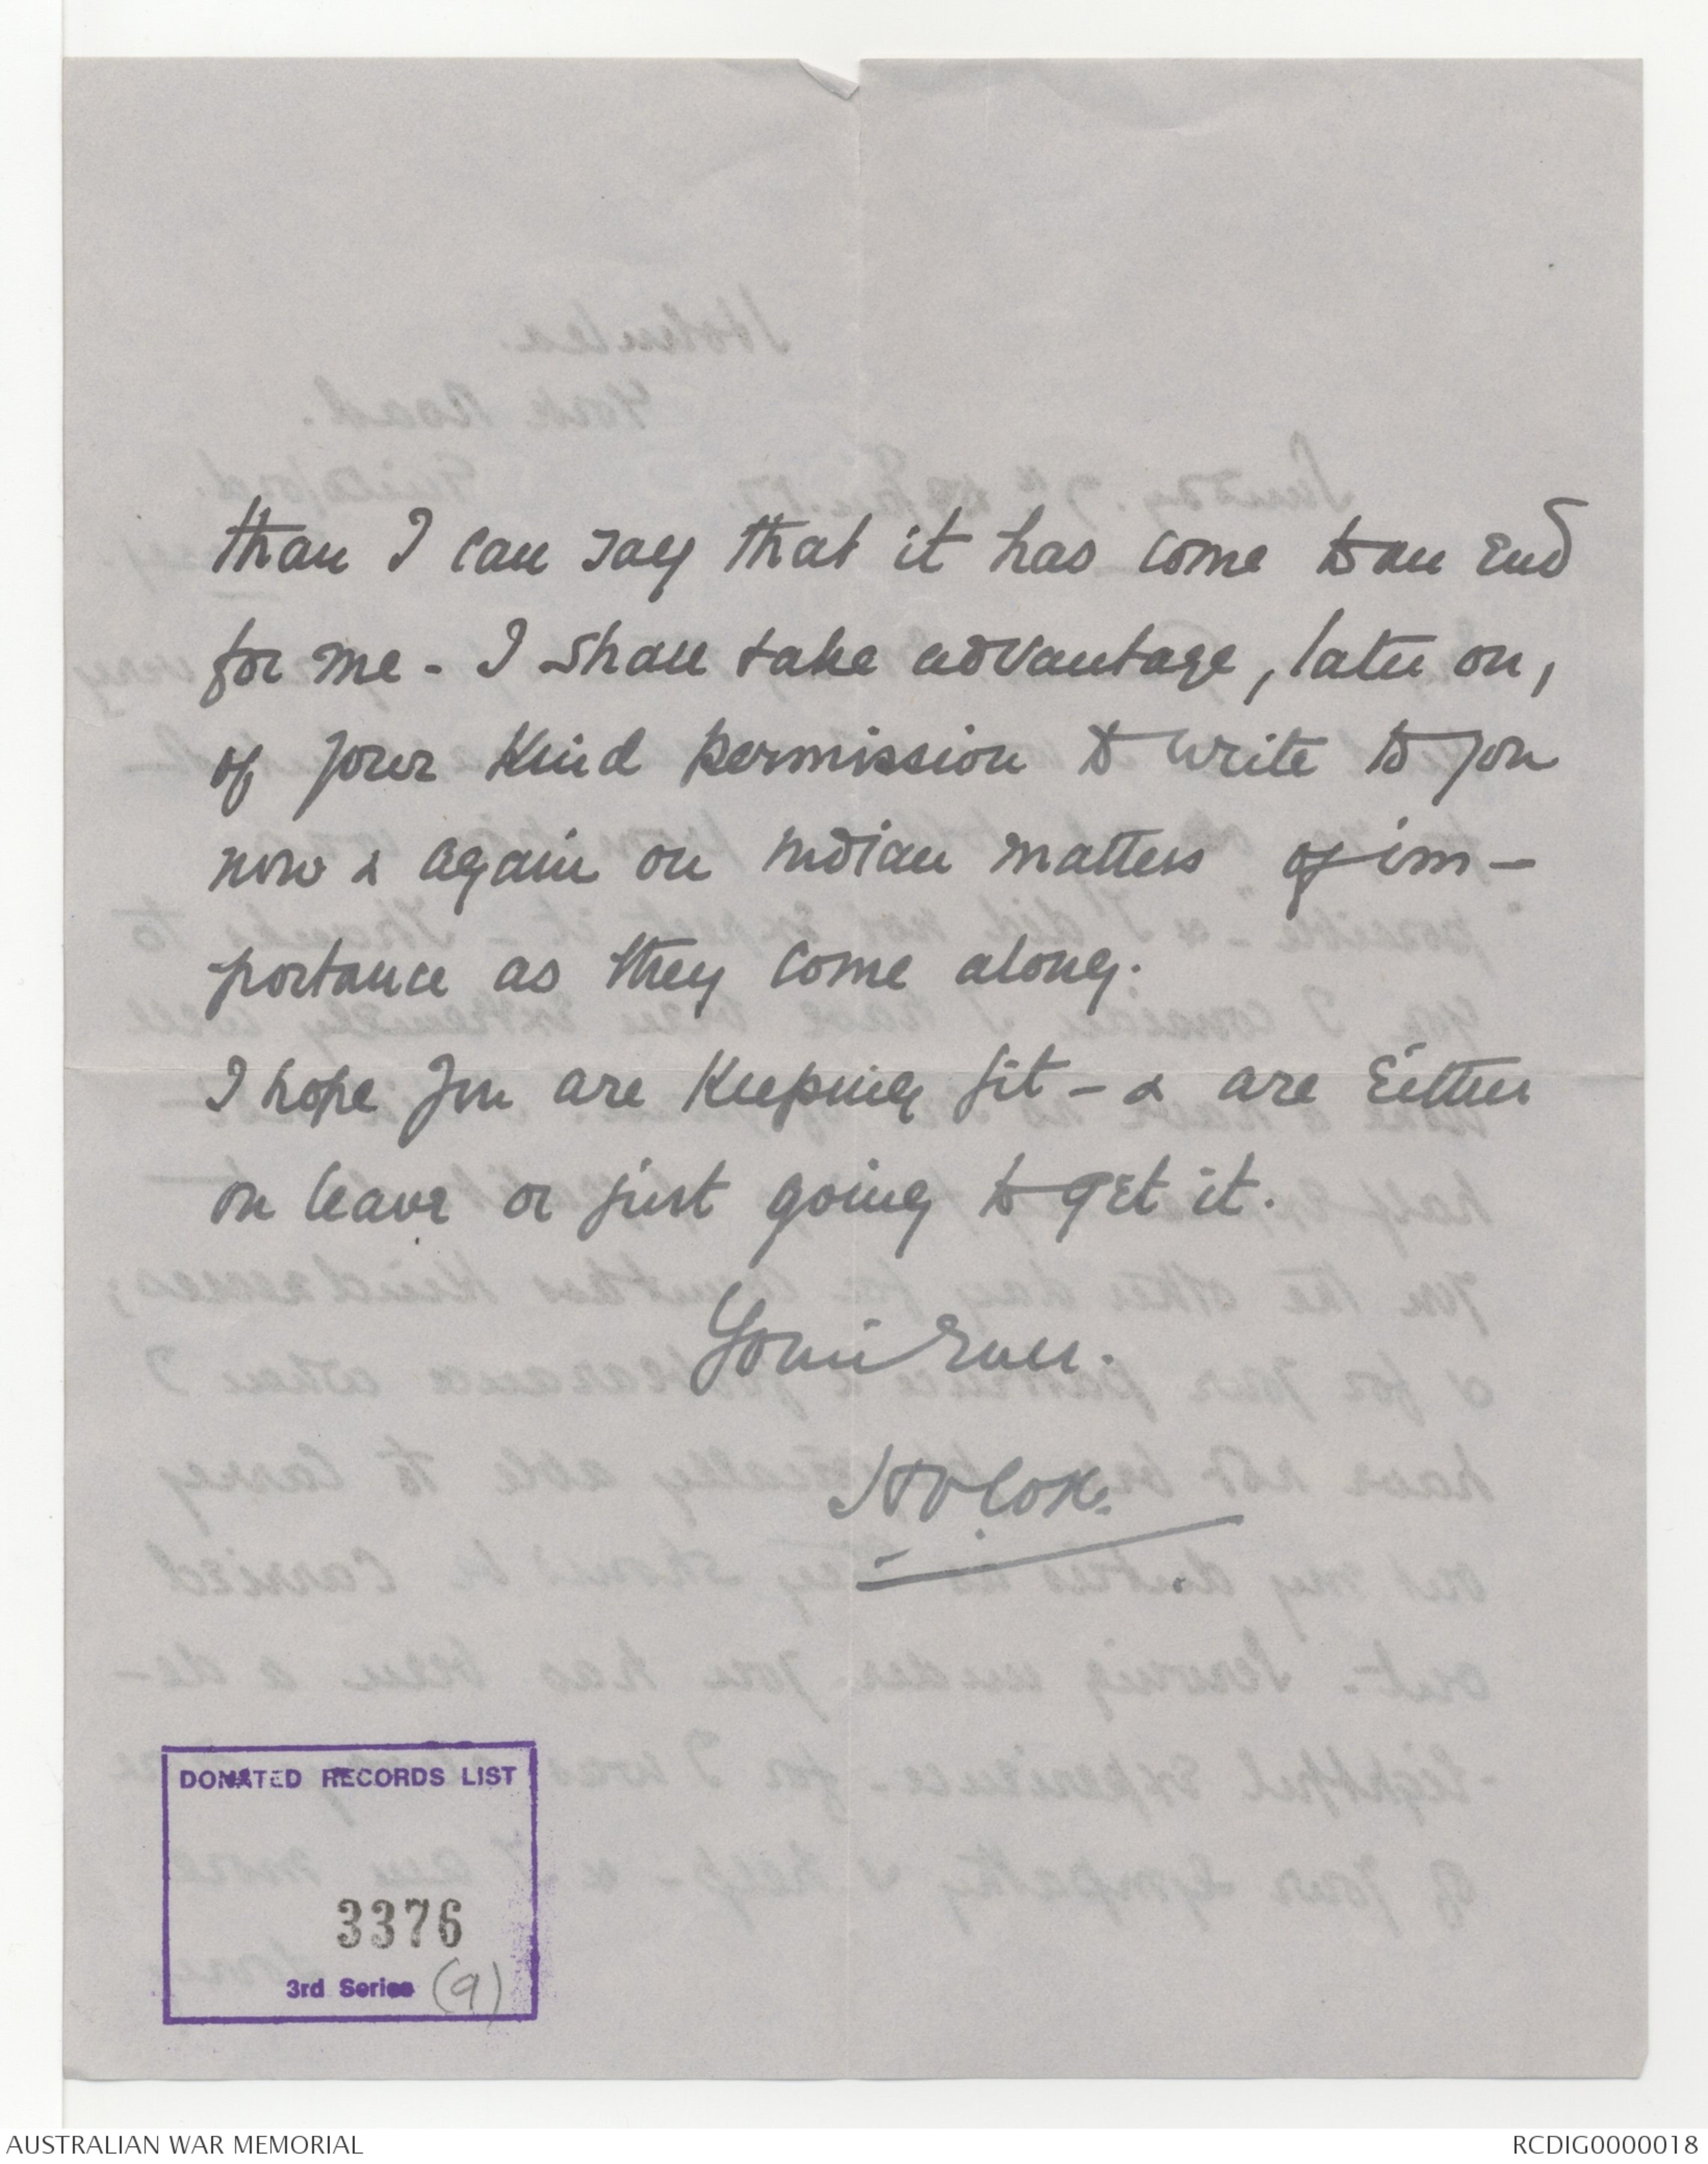 than I can say that it has come to an end
for me - I shall take advantage, later on,
of your kind permission to write to you
now & again on Indian matters of im-
portance as they come along.
I hope you are keeping fit - & are either
on leave or just going to get it.
Yours ever.
H V Cox.
DONATED RECORDS LIST
3376
3rd Series (9)
AUSTRALIAN WAR MEMORIAL
RCDIG0000018